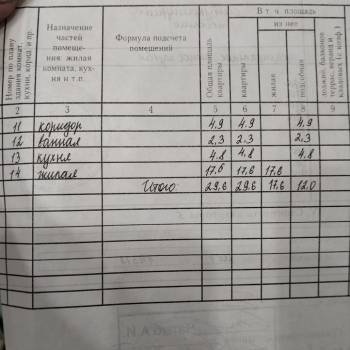 Номер по плану здания комнат, кухни, корид. и пр.
Назначение частей помеще- ния жилая комната, кух- ня и т.п.
Формула подсчета помещений
Общая площадь квартиры
В т ч. площадь
из нее
квартиры
жилая
подсобная
лоджий, балконов террас, веранд и кладовых (с коэф.)
2 3 4 5 6 7 8 9
11 коридор 4.9 4.9 4.9
12 ванная 2.3 2.3 2.3
13 кухня 4.8 4.8 4.8
14 жилая 17.6 17.6 17.6
Итого 29.6 29.6 17.6 12.0